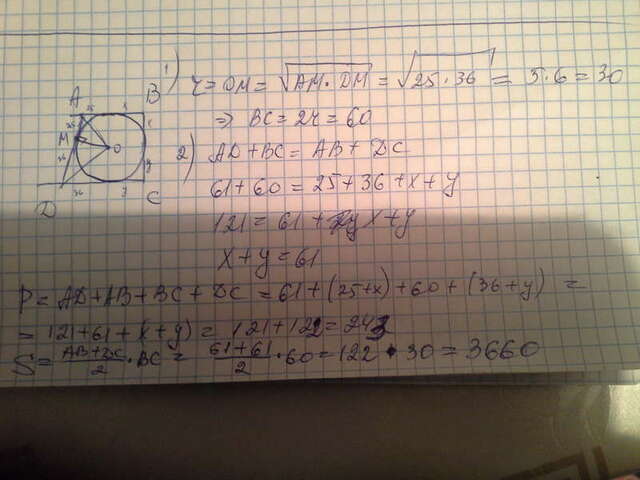 1) r = OM = √AM · DM = √25 · 36 = 5 · 6 = 30
⇒ BC = 2r = 60
2) AD + BC = AB + DC
61 + 60 = 25 + 36 + x + y
121 = 61 + x + y
x + y = 61
P = AD + AB + BC + DC = 61 + (25 + x) + 60 + (36 + y) =
= 121 + 61 + (x + y) = 121 + 122 = 243
S = AB + DC / 2 · BC = 61 + 61 / 2 · 60 = 122 · 30 = 3660
A
B
M
O
D
C